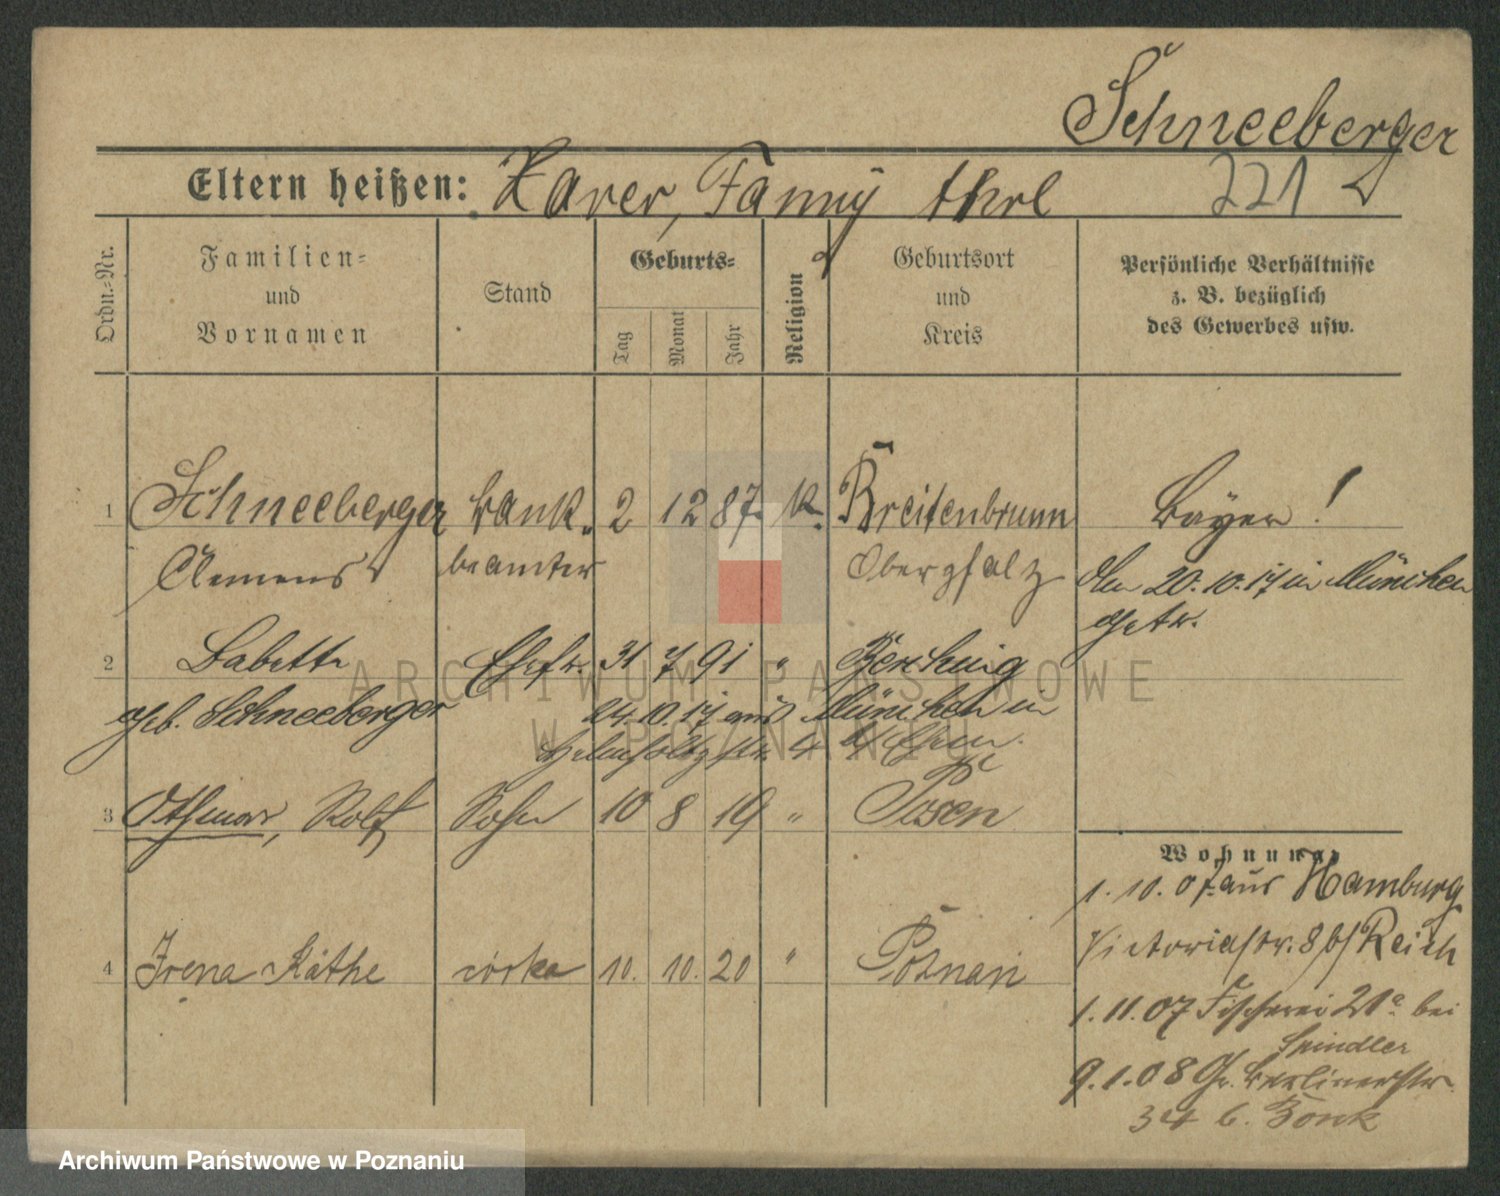 Schneeberger
Eltern heißen: Xaver, Fanny Ehrl 221
Ordn.-Nr.
Familien-
und
Vornamen
Stand
Geburts-
Tag
Monat
Jahr
Religion
Geburtsort
und
Kreis
Persönliche Verhältnisse
z. B. bezüglich
des Gewerbes usw.
1 Schneeberger Bank- 2 12 87. K. Breitenbrunn Bayer!
Clemens beamter Oberpfalz Am 20.10.17 in München
getr.
2 Babette Ehefr. 31 7 91 " Berching
geb. Schneeberger 24.10.17 aus München in
Helmholtzstr. 4
3 Othmar, Rolf Sohn 10 8 19 " Posen
Wohnung
1.10.07 aus Hamburg
Victoriastr. 8 b/ Reich
4 Irena Käthe córka 10. 10. 20 " Poznań
1.11.07 Fischerei 21a bei
Spindler
9.1.08 Gr. Berlinerstr.
34 b. Bonk
ARCHIWUM PAŃSTWOWE
W POZNANIU
Archiwum Państwowe w Poznaniu